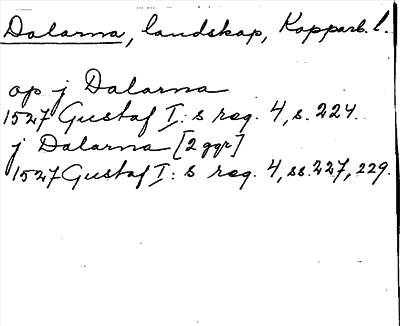 Dalarna, landskap, Kopparb. l.
op j Dalarna
1527 Gustaf I:s reg. 4, s. 224.
j Dalarna [2 ggr]
1527 Gustaf I:s reg. 4, ss. 227, 229.